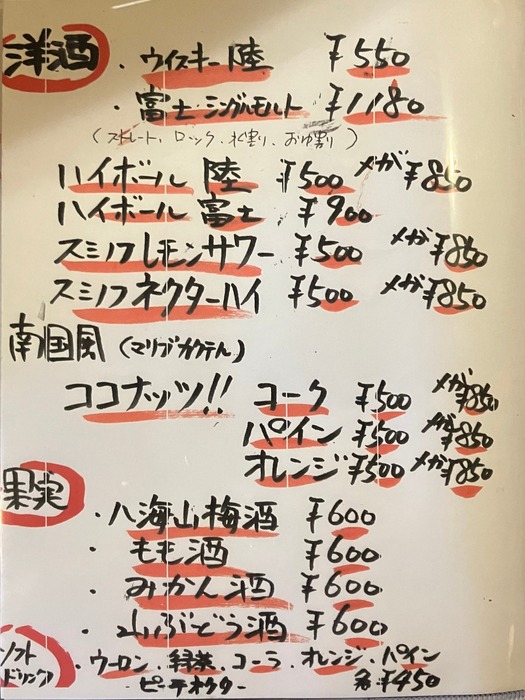 洋酒 ・ウイスキー 陸 ¥550
・富士・シングルモルト ¥1180
(ストレート、ロック、水割り、おゆ割り)
ハイボール 陸 ¥500 メガ¥850
ハイボール 富士 ¥900
スミノフレモンサワー ¥500 メガ¥850
スミノフネクターハイ ¥500 メガ¥850
南国風 (マリブカクテル)
ココナッツ!! コーク ¥500 メガ¥850
パイン ¥500 メガ¥850
オレンジ ¥500 メガ¥850
果実
・八海山梅酒 ¥600
・もも酒 ¥600
・みかん酒 ¥600
・山ぶどう酒 ¥600
ソフトドリンク ・ウーロン・緑茶・コーラ・オレンジ・パイン
・ピーチネクター 各¥450